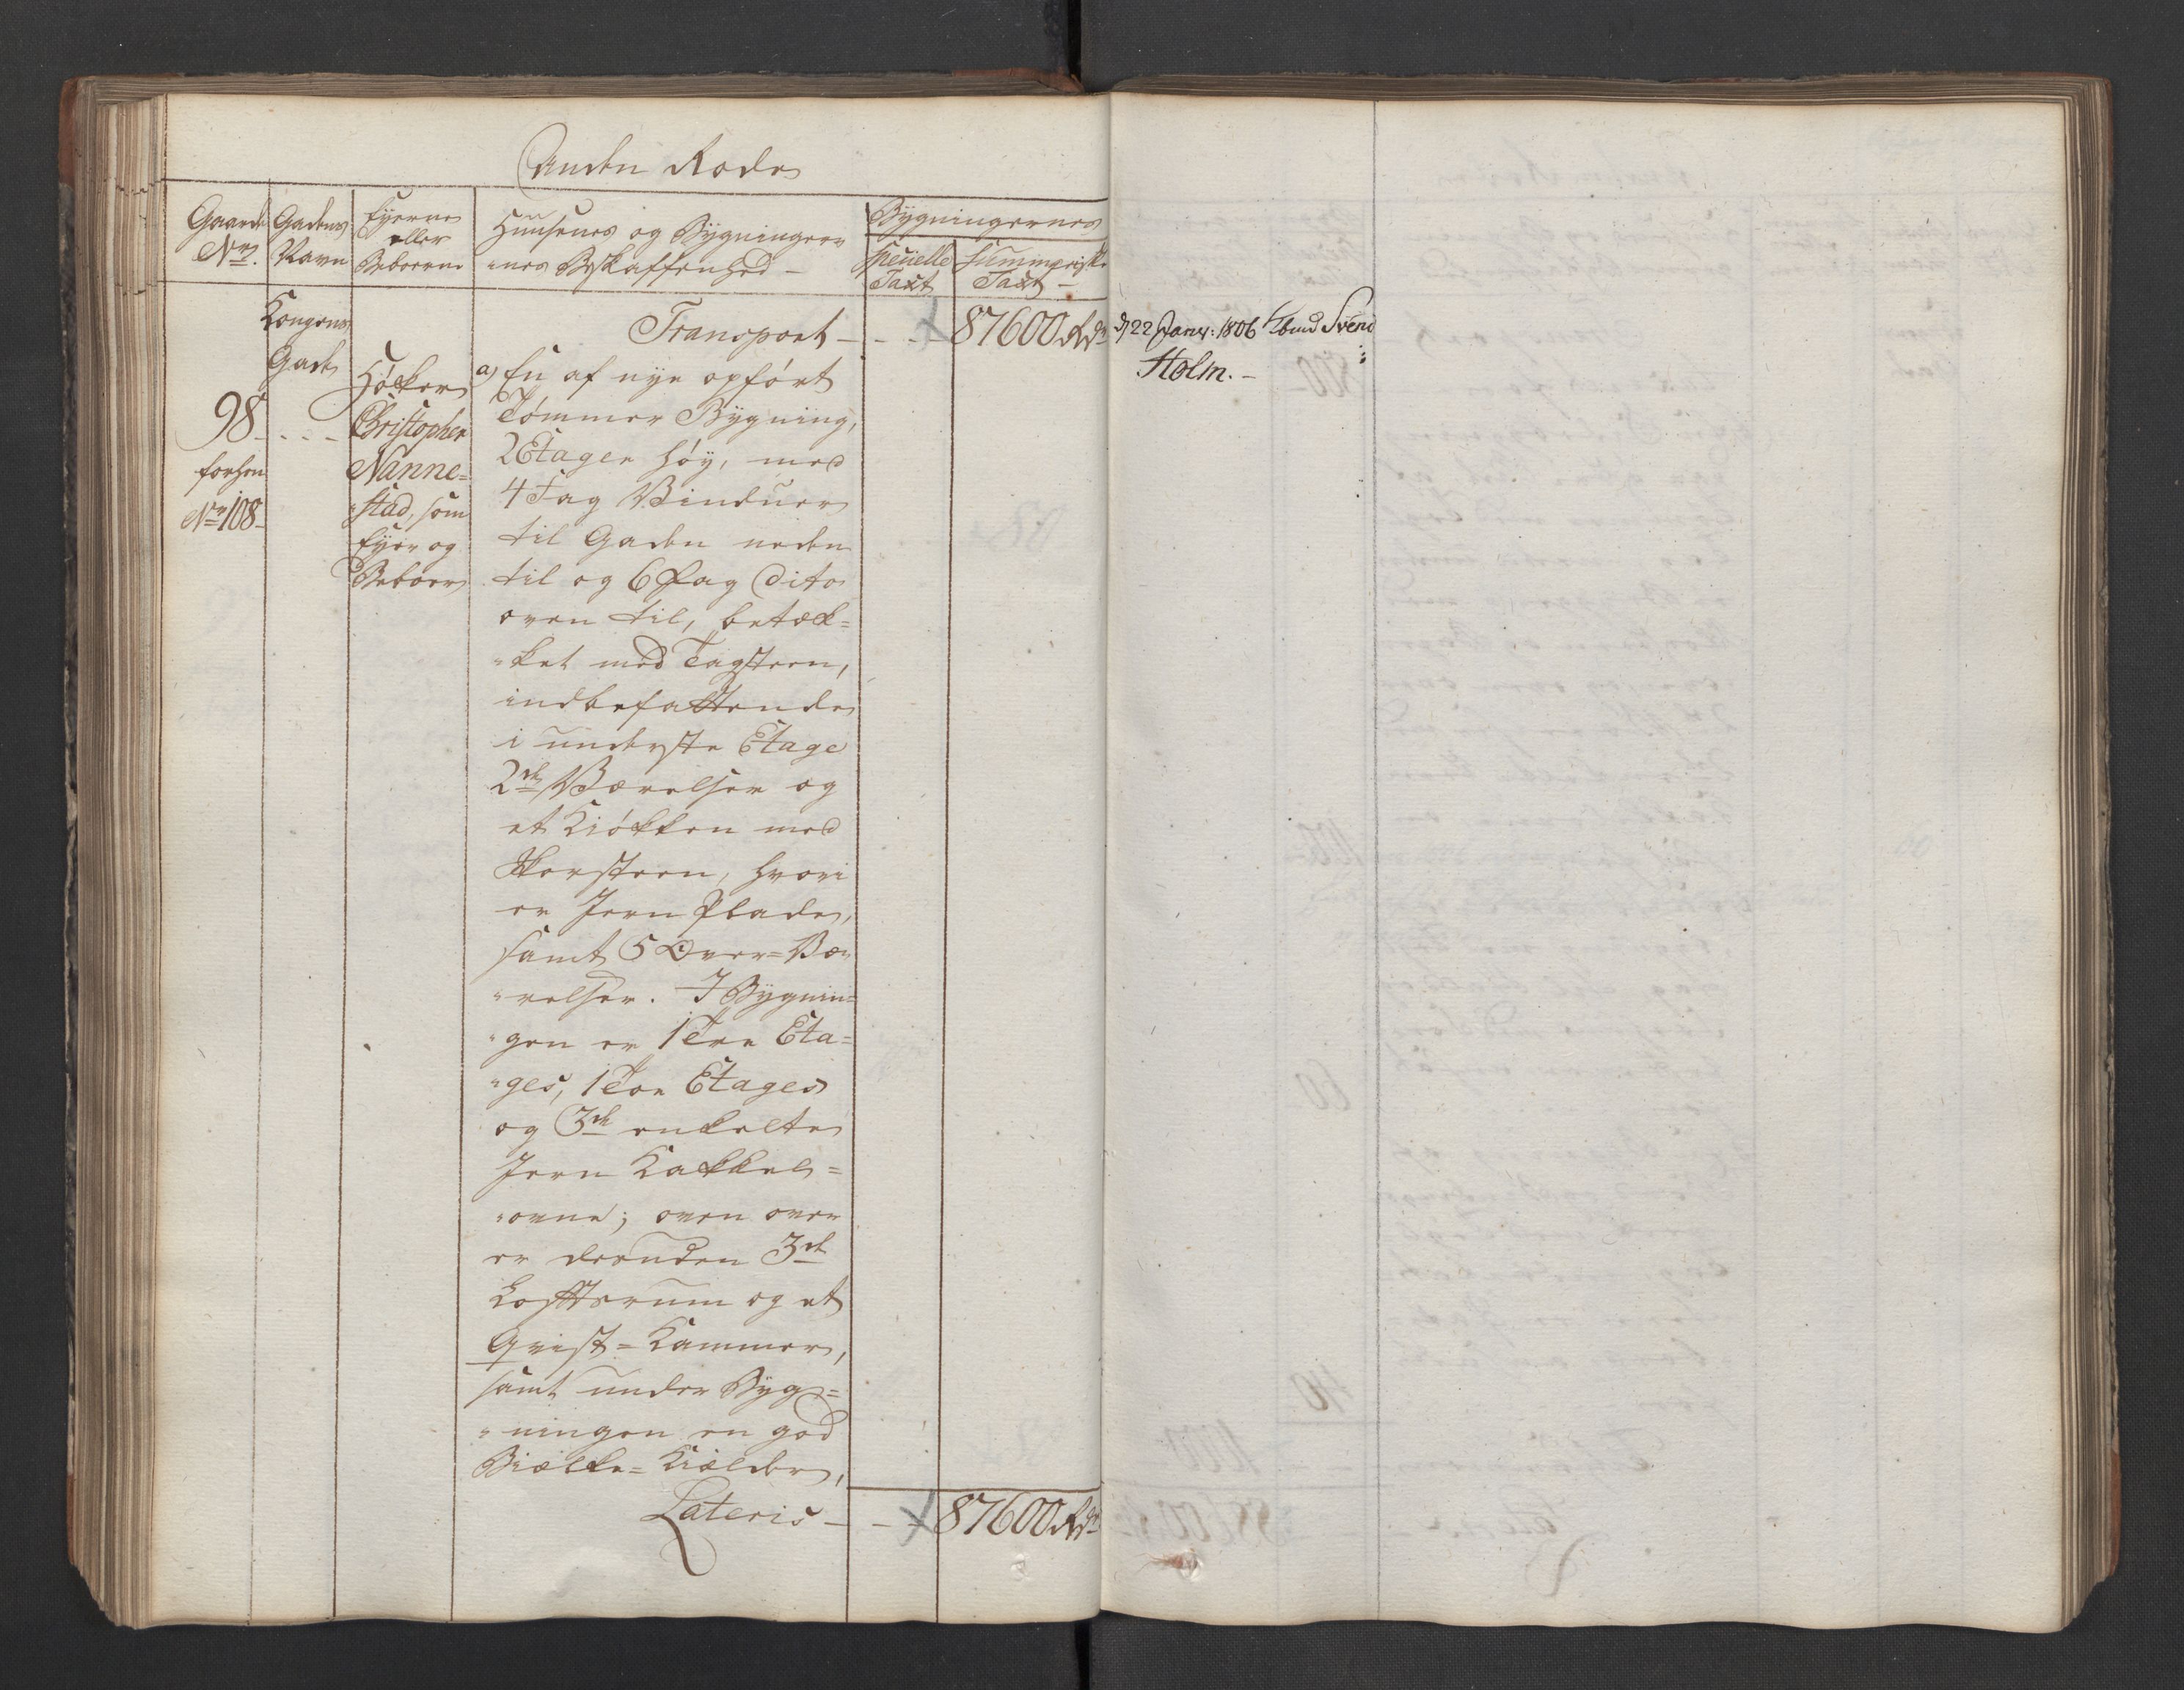 Anden Rode
Gaards No.
Gadens Navn
Eyerne eller Beboerne
Huusenes og Bygninger-
"nes Beskaffenhed -
Bygningernes
Specielle Taxt
Summariske Taxt -
Transport - - - 87600 Rdr
Kongens Gade
98 - - - -
forhen
No 108 -
Høcker
Christopher
Nanne=
"stad, som
Eyer og
Beboer
a) En af nye opført
Tømmer Bygning,
2 Etager høy, med
4 Fag Vinduer
til Gaden neden
til og 6 Fag Dito
oven til, betæk=
"ket med Tagsteen,
indbefattende
i underste Etage
2de Værelser og
et Kiøkken med
Skorsteen, hvori
er Jern Plade,
samt 5 Over=Væ=
"relser. I Bygnin=
"gen er 1 Tre Eta=
"ges, 1 Toe Etages
og 3de enkelte
Jern Kakkel=
"ovne; oven over
er desuden 3de
Loftsrum og et
Qvist=Kammer,
samt under Byg=
"ningen en god
Bielke=Kielder,
Lateris - - - 87600 Rdr
d 22 Janr: 1806 Svend
Holm. -